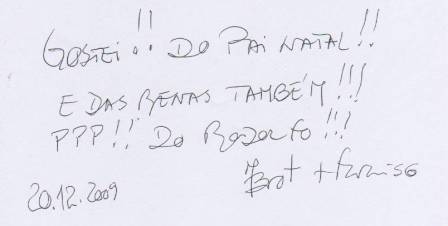 GOSTEI!! DO PAI NATAL!!
E DAS RENAS TAMBÉM!!!
PPP!! DO RODOLFO!!!
20.12.2009